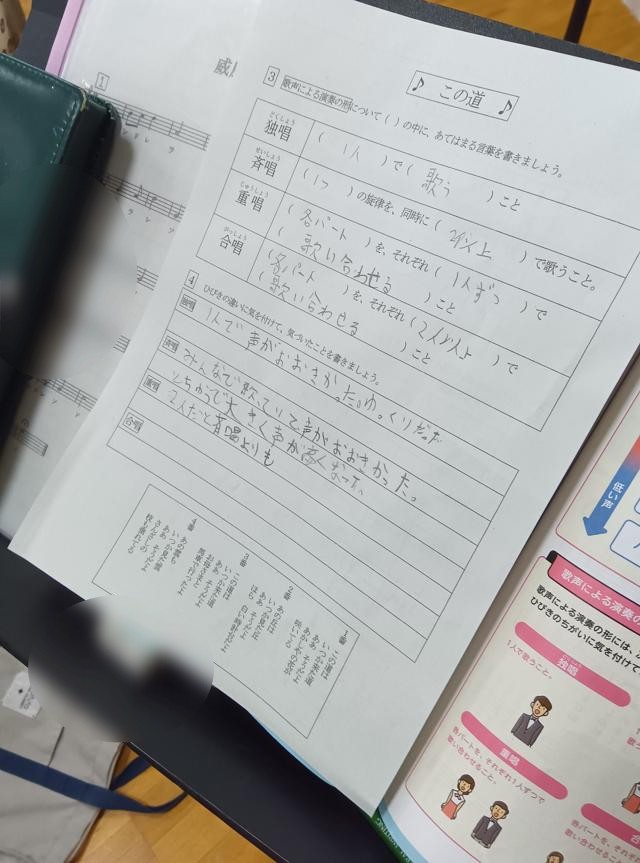 威
1
♪ この道 ♪
3 歌声による演奏の形について（ ）の中に、あてはまる言葉を書きましょう。
どくしょう
独唱
（ 1人 ）で（ 歌う ）こと
せいしょう
斉唱
（ 1つ ）の旋律を、同時に（ 2人以上 ）で歌うこと。
じゅうしょう
重唱
（ 各パート ）を、それぞれ（ 1人ずつ ）で
（ 歌い合わせる ）こと
がっしょう
合唱
（ 各パート ）を、それぞれ（ 2人以上 ）で
（ 歌い合わせる ）こと
4 ひびきの違いに気を付けて、気づいたことを書きましょう。
独唱
1人で声がおおきかった。ゆっくりだった
斉唱
みんなで歌っていて声がおおきかった。
重唱
とちゅうで大きく声が高くなった。
2人だと斉唱よりも
合唱
1番
この道は
いつか来た道
ああ そうだよ
2番
あの丘は
いつか見た丘
ああ そうだよ
ほら 白い時計台だよ
3番
この道は
いつか来た道
ああ そうだよ
お母さまと
馬車で行ったよ
4番
あの雲も
いつか見た雲
ああ そうだよ
低い声
歌声による演奏の
歌声による演奏の形には、
ひびきのちがいに気を付けて
独唱
1人で歌うこと。
重唱
各パートを、それぞれ1人ずつで
歌い合わせること。